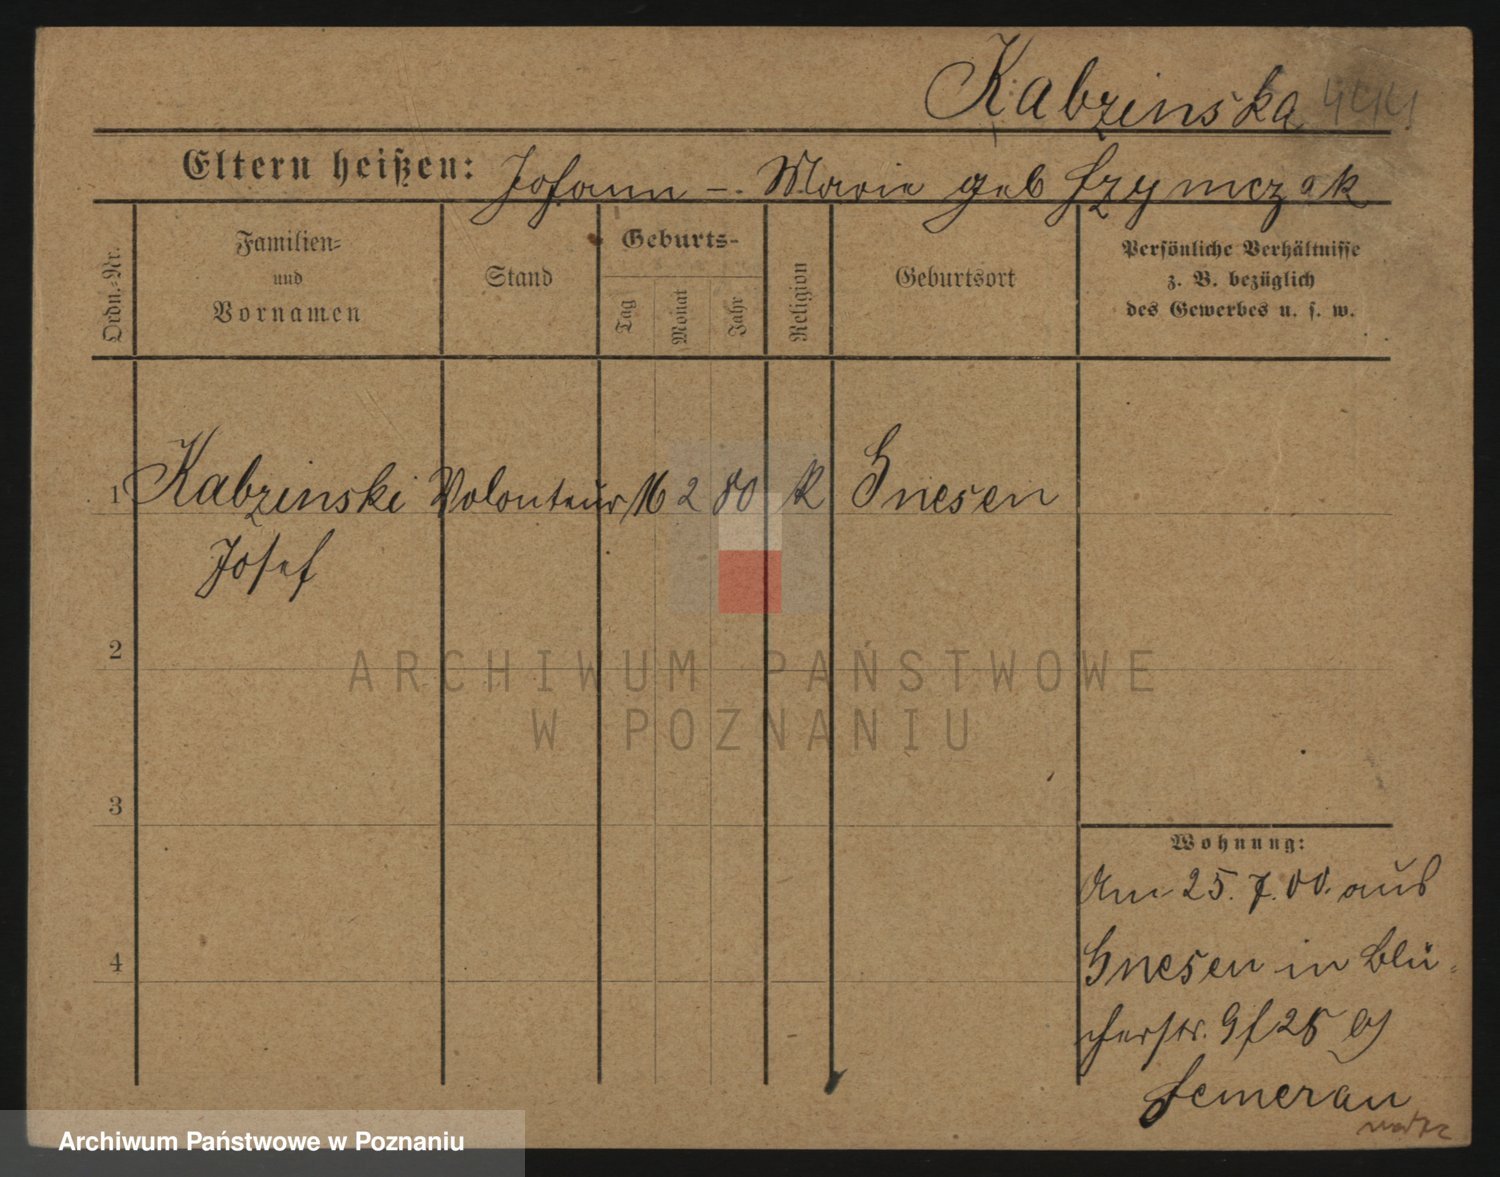 Kabzinska 444
Eltern heißen: Johann - Marie geb Szymczak
Ordn.-Nr.
Familien-
und
Vornamen
Stand
Geburts-
Tag
Monat
Jahr
Religion
Geburtsort
Persönliche Verhältnisse
z. B. bezüglich
des Gewerbes u. s. w.
1 Kabzinski Volonteur 16 2 80 K Gnesen
Josef
2
ARCHIWUM PAŃSTWOWE
W POZNANIU
3
4
Wohnung:
Am 25. 7. 00. aus
Gnesen in Blü-
cherstr. 9 25
Semerau
Archiwum Państwowe w Poznaniu